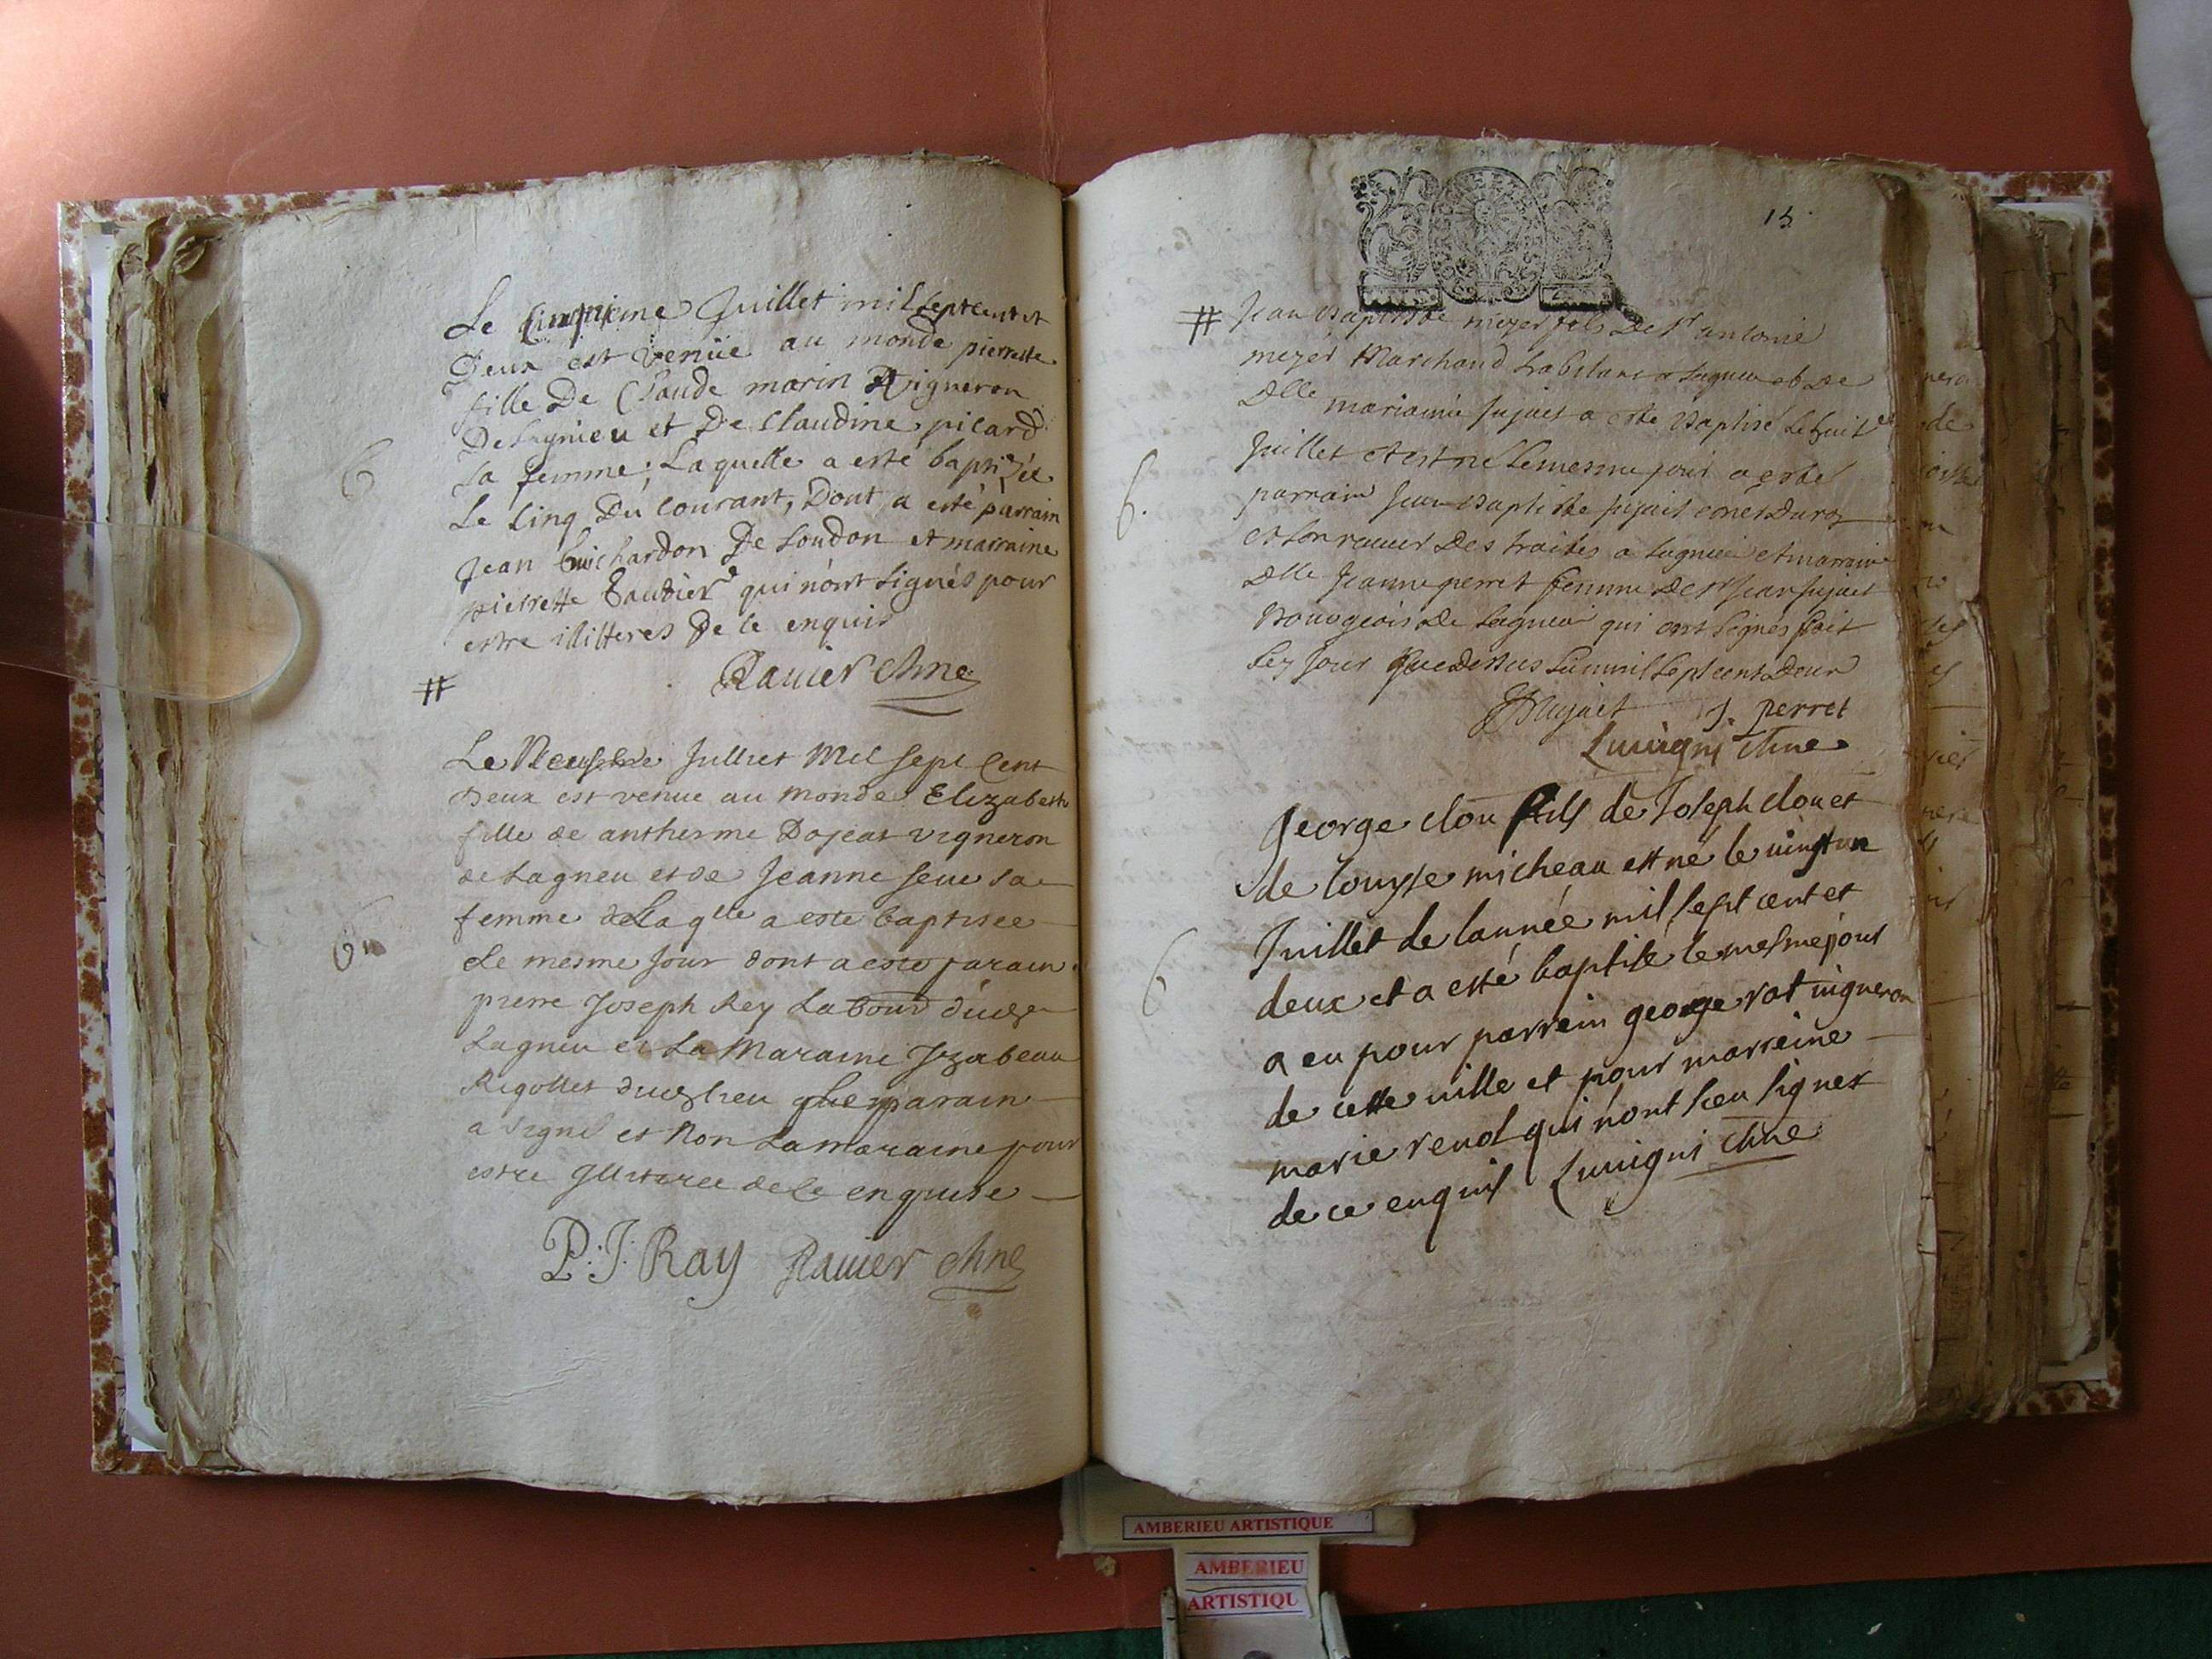 Le Cinquieme Juillet mil sept cent et
Deux est venüe au monde pierrette
fille De Claude marin Vigneron
De Lagnieu et De Claudine picard
sa femme; Laquelle a esté baptizée
Le Cinq Du Courant, Dont a esté parrain
Jean Guichardon De Loudon et marraine
pierrette qui n'ont signés pour
estre illitteres De ce enquis
Ravier chne
#
6
Le Neufvie Julliet Mil Sept Cent
Deux est venue au monde Elizabeth
fille de antherme Dojeat vigneron
de Lagneu et de Jeanne seue sa
femme Laqlle a este baptisee
Le mesme Jour dont a esté parain
pierre Joseph Rey Labour
Lagneu et La Maraine Izabeau
Rigollet parain
a signé et Non La maraine pour
estre de Ce enquise
P: J: Ray Ravier chne
15
# Jean Baptiste meyer fils De Sr antoine
meyer Marchand habitant a Lagneu et De
Dlle marianne sujait a esté Baptisé Le huit
Juillet et est né Le mesme jour a esté
parrain Jean Baptiste sujait
et Des traites a Lagnieu et marraine
Dlle Jeanne perret femme De Sr Jean sujait
Bourgeois De Lagneu qui ont signés fait
Les Jour que Dessus L'an mil sept cent Deux
6.
J. perret
Luuigni chne
George clou fils de Joseph clou et
de Louyse micheau est né le uingt un
Juillet de lannée mil sept cent et
deux et a esté baptisé le mesme jour
a eu pour parrein george rat uigneron
de cette uille et pour marreine
marie renot qui n'ont sceu signer
de ce enquis Luuigni chne
6
AMBERIEU ARTISTIQUE
AMBERIEU
ARTISTIQU